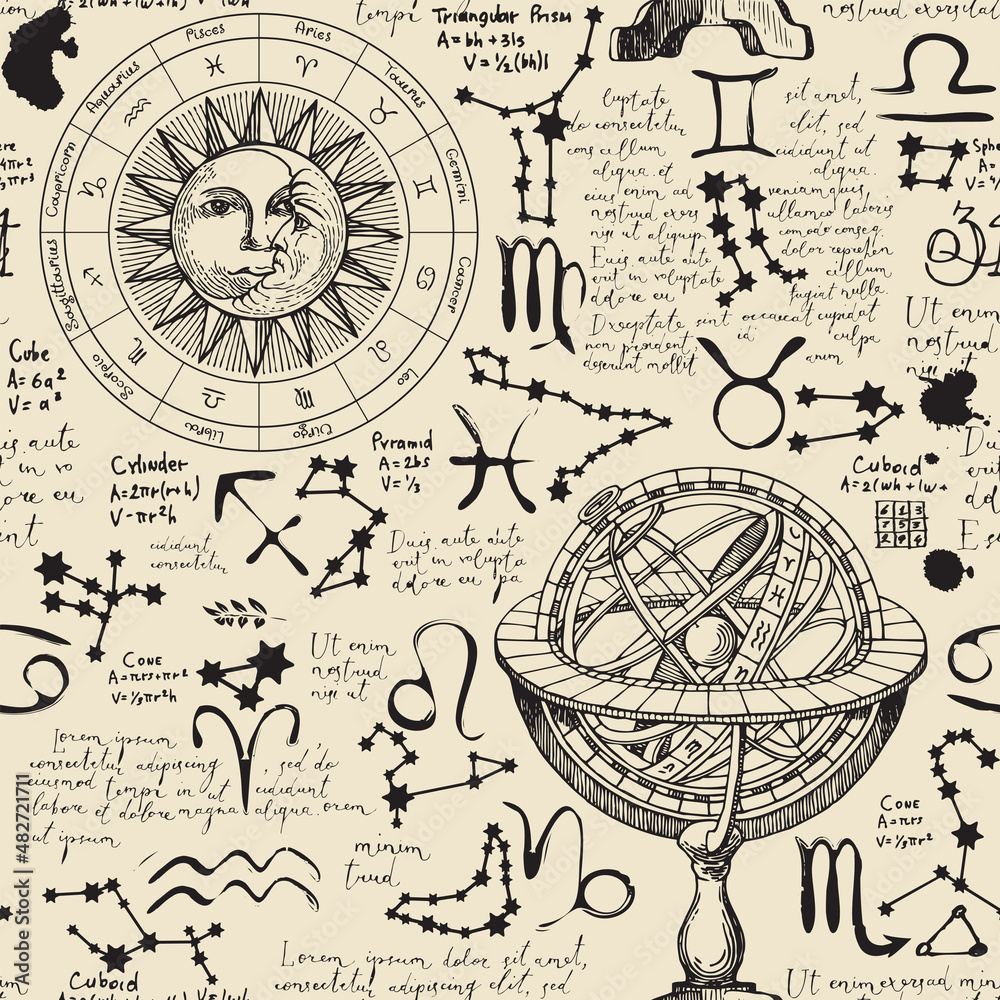 tempi
Triangular Prism
A=bh + 3ls
V=½(bh)l
nostrud exercitat
Pisces
Aries
Taurus
Gemini
Cancer
Leo
Virgo
Libra
Scorpio
Sagittarius
Capricorn
Aquarius
luptate
do consectetur
cons cillum
aliqua. et
enim ad
nostrud exers
nisi ut aliquip
Euis aute aute
erit in voluptate
dolore eu
sit amet,
elit, sed
cididunt ut
aliqua.
veniam, quis,
ullamco laboris
comodo conseq.
dolor reprehen
cillum
fugiat nulla.
Dxceptate sint occaecat cupidat
non proident, id culpa
deserunt mollit anim
Sphe
A=
34
Ut enim
nostrud
nisi ut
Cube
A=6a²
V=a³
is aute
t in vo
ore eu
Cylinder
A=2πr(r+h)
V-πr²h
Pyramid
A=2bs
V=⅓
cididunt
consectetur
Duis aute aute
erit in volupta
dolore eu pa
Cuboid
A=2(wh+lw+
6 1 3
7 5 3
2 9 4
Cone
A=πrs+πr²
V=⅓πr²h
Ut enim
nostrud
nisi ut
Lorem ipsum
consectetur adipiscing, sed do
eiusmod tempi in ut cididunt
labore et dolore magna aliqua. orem
ut ipsum
minim
trud
Cone
A=πrs
V=⅓πr²
Cuboid
Lorem ipsum dolor sit amet,
consectetur adipiscing elit, sed
Ut enim exersad mini
nostrud
Adobe Stock | #482721711